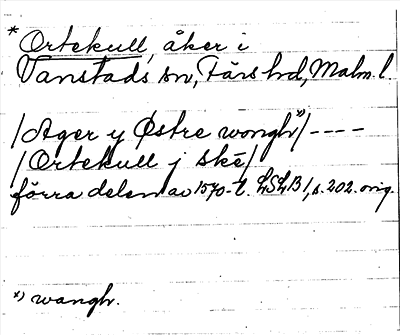 * Ortekull, åker i
Vanstads sn, Färs hd, Malm. l.
/Ager y Østre wongh*)/----
/Ortekull j ske/
förra delen av 1570-t. LSLB 1, s. 202. orig.
*) wangh.